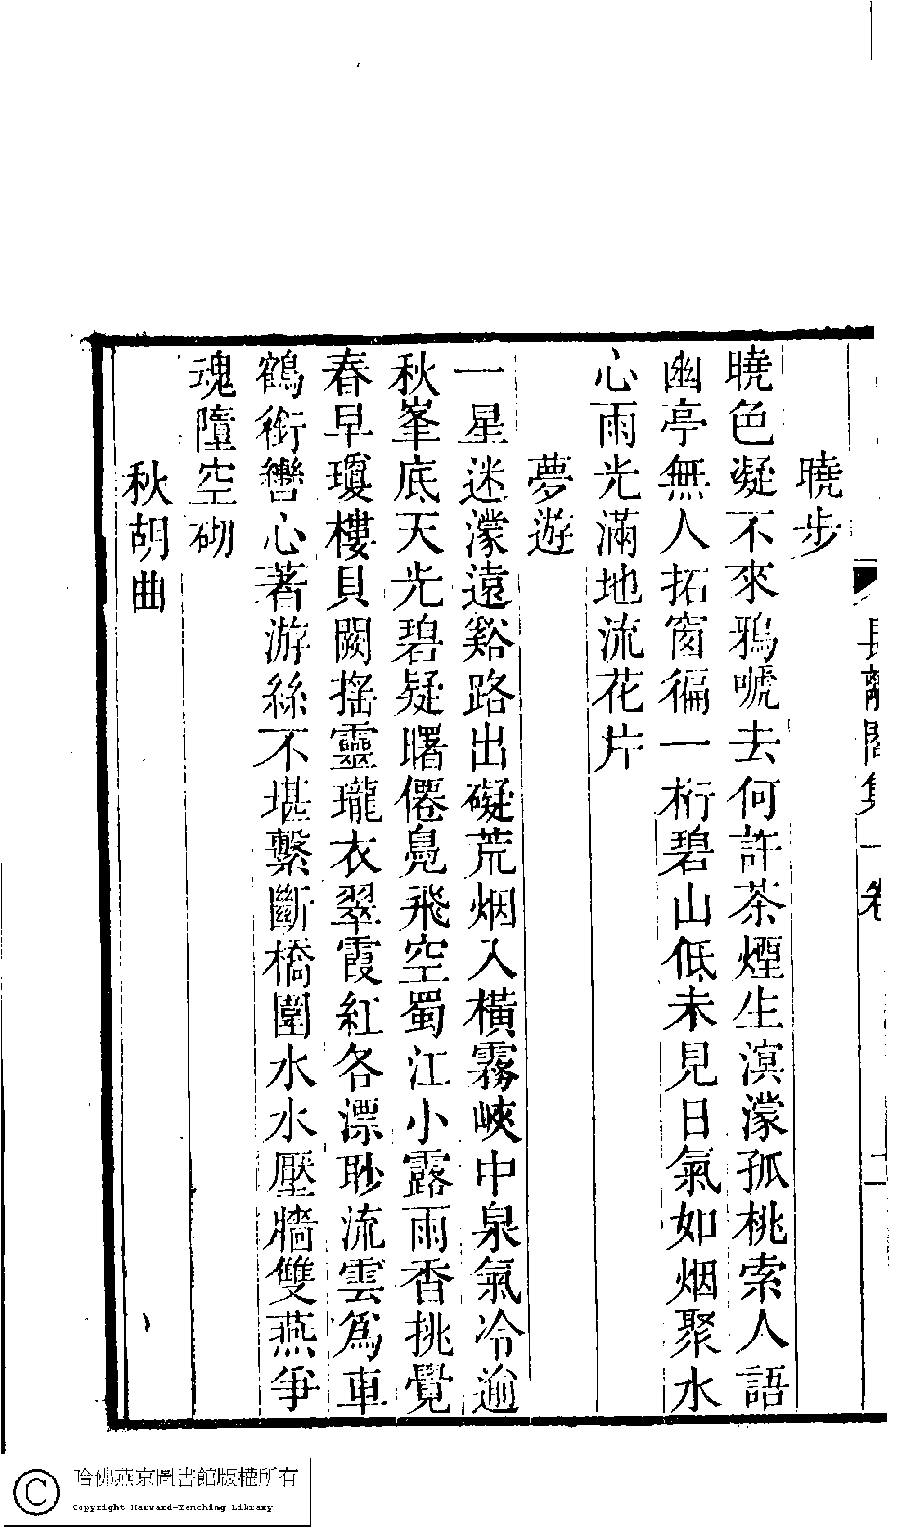 長離閣集一卷
二
曉步
曉色凝不來鴉嗁去何許茶煙生溟濛孤桃索人語
幽亭無人拓窗徧一桁碧山低未見日氣如烟聚水
心雨光滿地流花片
夢遊
一星迷濛遠谿路出礙荒烟入橫霧峽中泉氣冷逾
秋峯底天光碧疑曙僊鳧飛空蜀江小露雨香挑覺
春早瓊樓貝闕搖靈瓏衣翠霞紅各漂眇流雲爲車
鶴銜轡心著游絲不堪繫斷橋圍水水壓牆雙燕爭
魂墮空砌
秋胡曲
哈佛燕京圖書館版權所有
Copyright Harvard-Yenching Library